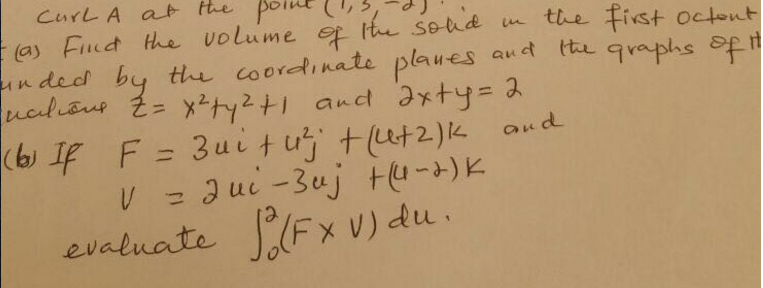 Curl A at the point (1, 3, -2).
(a) Find the volume of the solid in the first octent
unded by the coordinate planes and the graphs of th
uations z = x²+y²+1 and 2x+y = 2
(b) If F = 3ui + u²j + (u+2)k and
V = 2ui - 3uj + (u-2)k
evaluate ∫₀²(F x V) du.